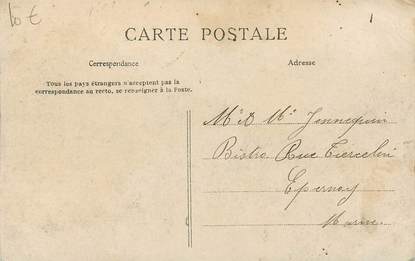 10 €
CARTE POSTALE
Correspondance
Adresse
Tous les pays étrangers n'acceptent pas la
correspondance au recto, se renseigner à la Poste.
Mr & Me Jennequin
Bistro Rue Tiercelin
Epernay
Marne